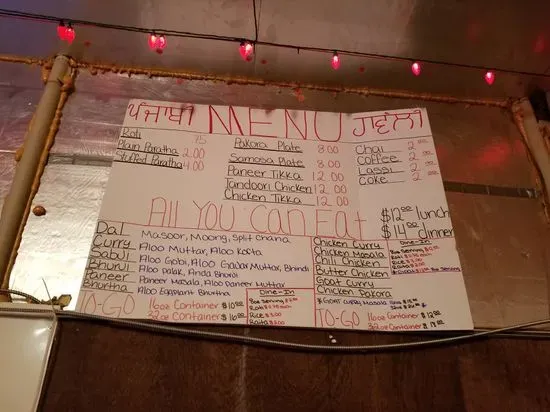 ਪੰਜਾਬੀ MENU ਹਵੇਲੀ
Roti .75
Plain Paratha 2.00
Stuffed Paratha 4.00
Pakora Plate 8.00
Samosa Plate 8.00
Paneer Tikka 12.00
Tandoori Chicken 12.00
Chicken Tikka 12.00
Chai 2.00
Coffee 2.00
Lassi 2.00
Coke 2.00
All You Can Eat
$12.00 lunch
$14.00 dinner
Dal Masoor, Moong, Split chana
Curry Aloo Muttar, Aloo Kofta
Sabji Aloo Gobi, Aloo Gajar Muttar, Bhindi
Bhurji Aloo Palak, Anda Bhurji
Paneer Paneer Masala, Aloo Paneer Muttar
Bhurtha Aloo Eggplant Bhurtha
TO-GO
16oz Container $10.00
32oz Container $16.00
Dine-In
Rice $3.00
Raita $2.00
Chicken Curry
Chicken Masala
Chili Chicken
Butter Chicken
Goat Curry
Chicken Pakora
Dine-In
TO-GO
16oz Container $12.00
32oz Container $18.00